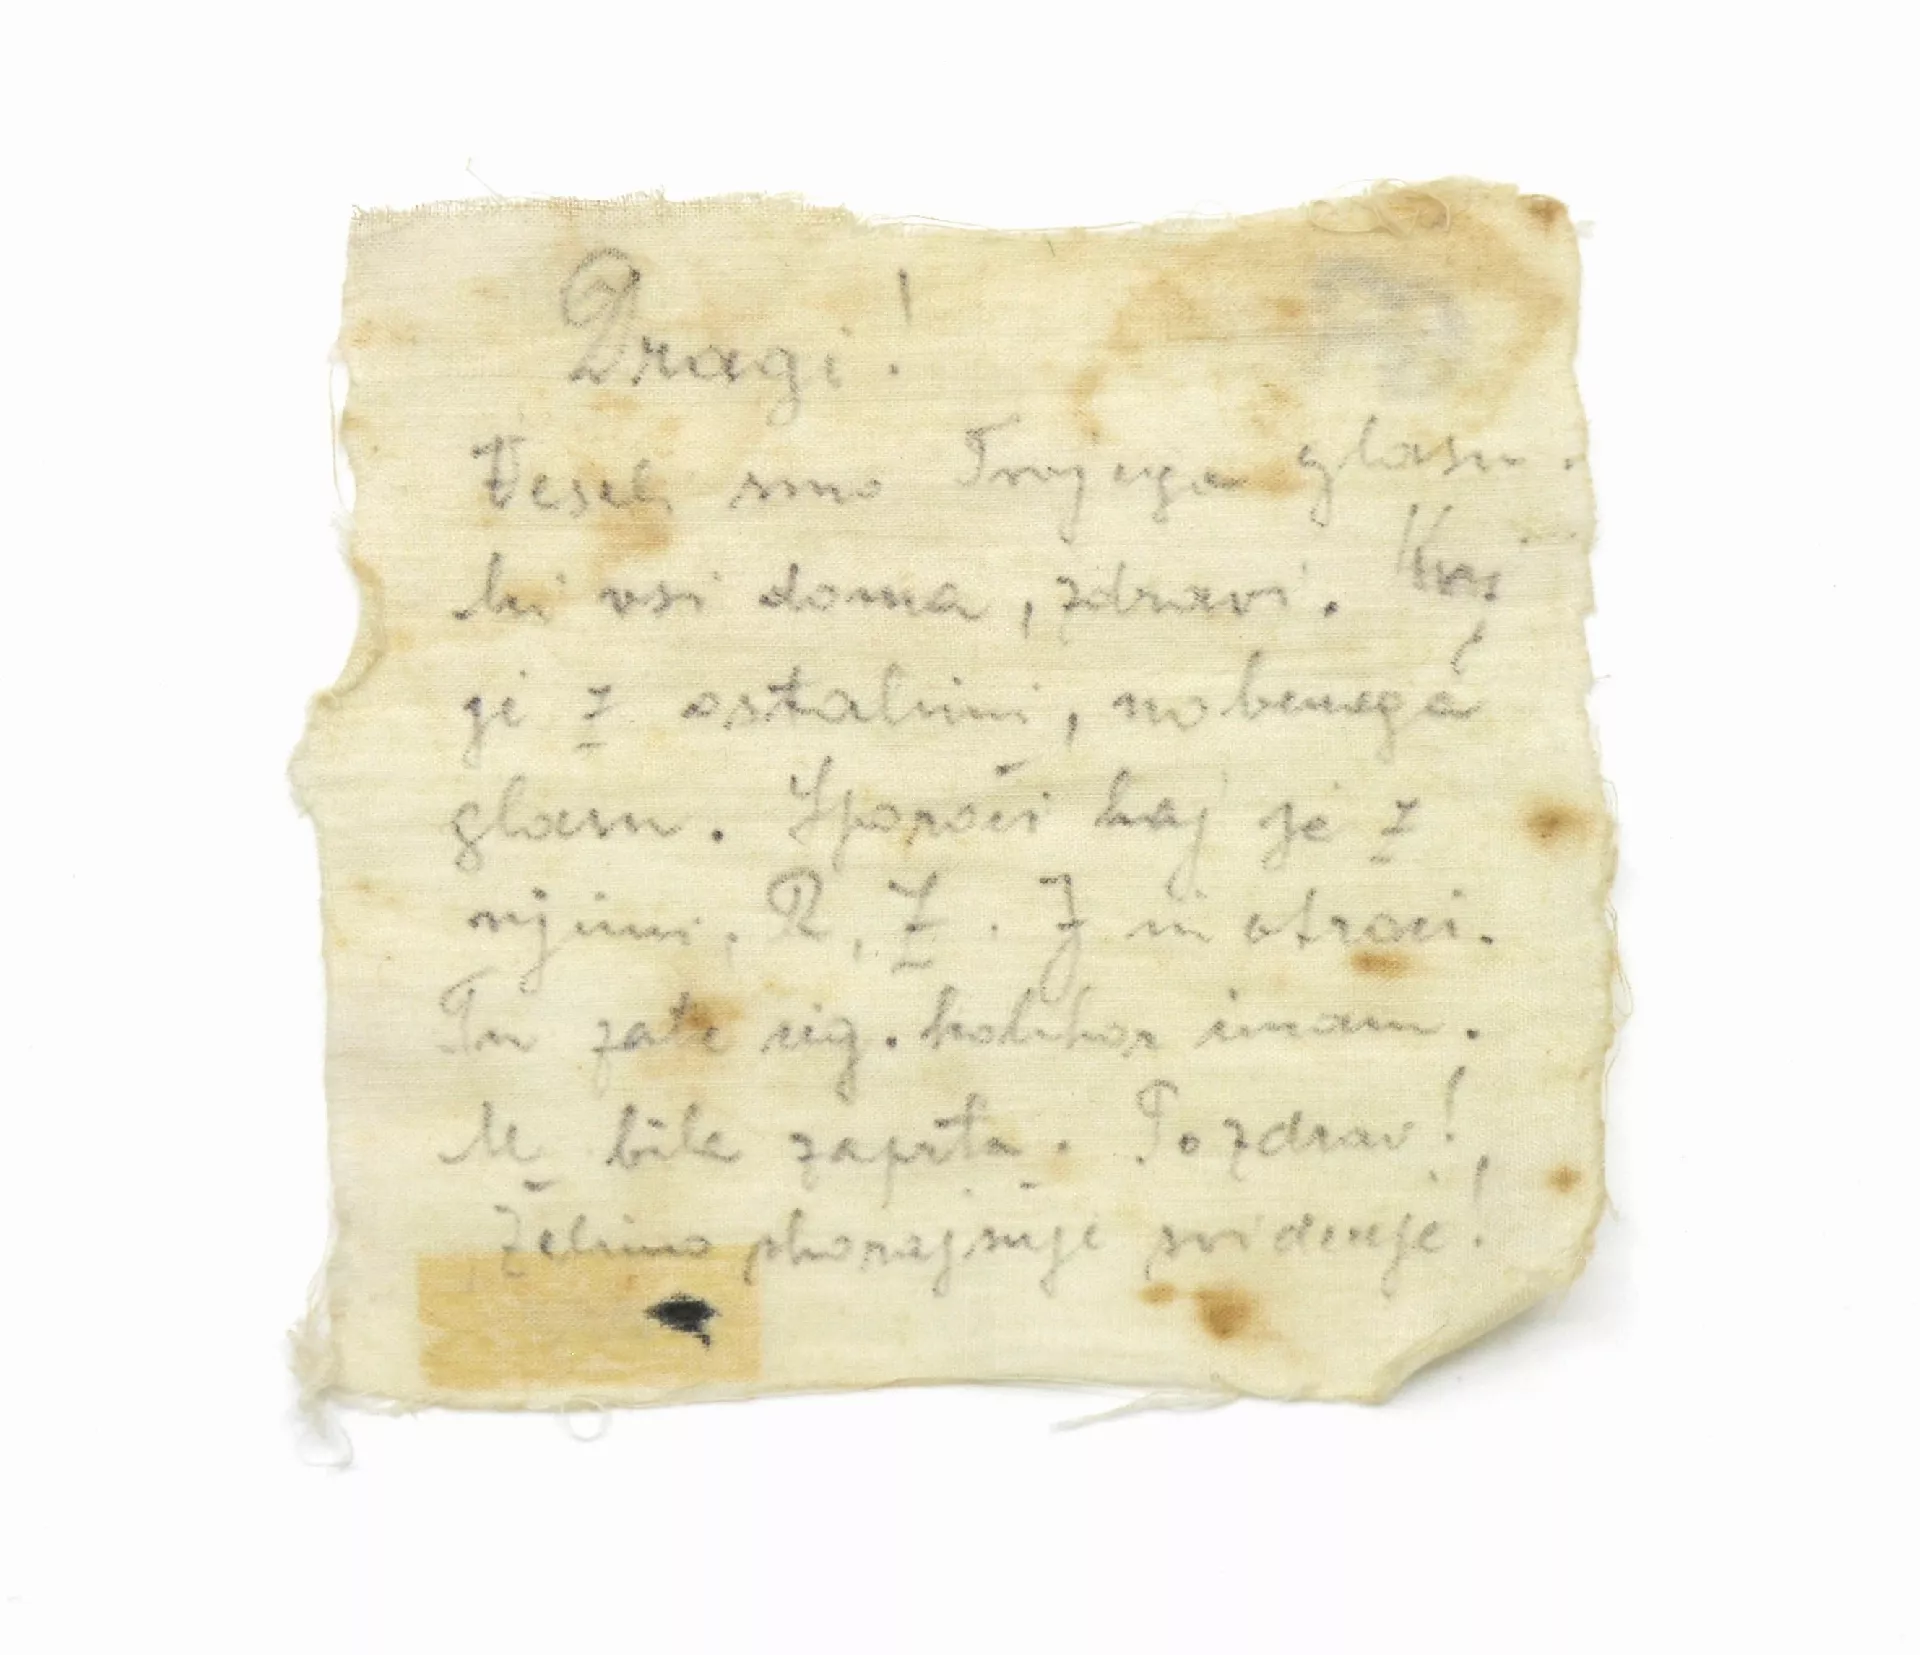 Dragi!
Veseli smo Tvojega glasu.
Mi vsi doma, zdravi. Kaj
je z ostalimi, nobenega
glasu. Sporoči kaj je z
njimi. R, Z. J in otroci.
Tu zate cig. kolikor imam.
M bile zaprta. Pozdrav!
Želimo skorajšnje svidenje!